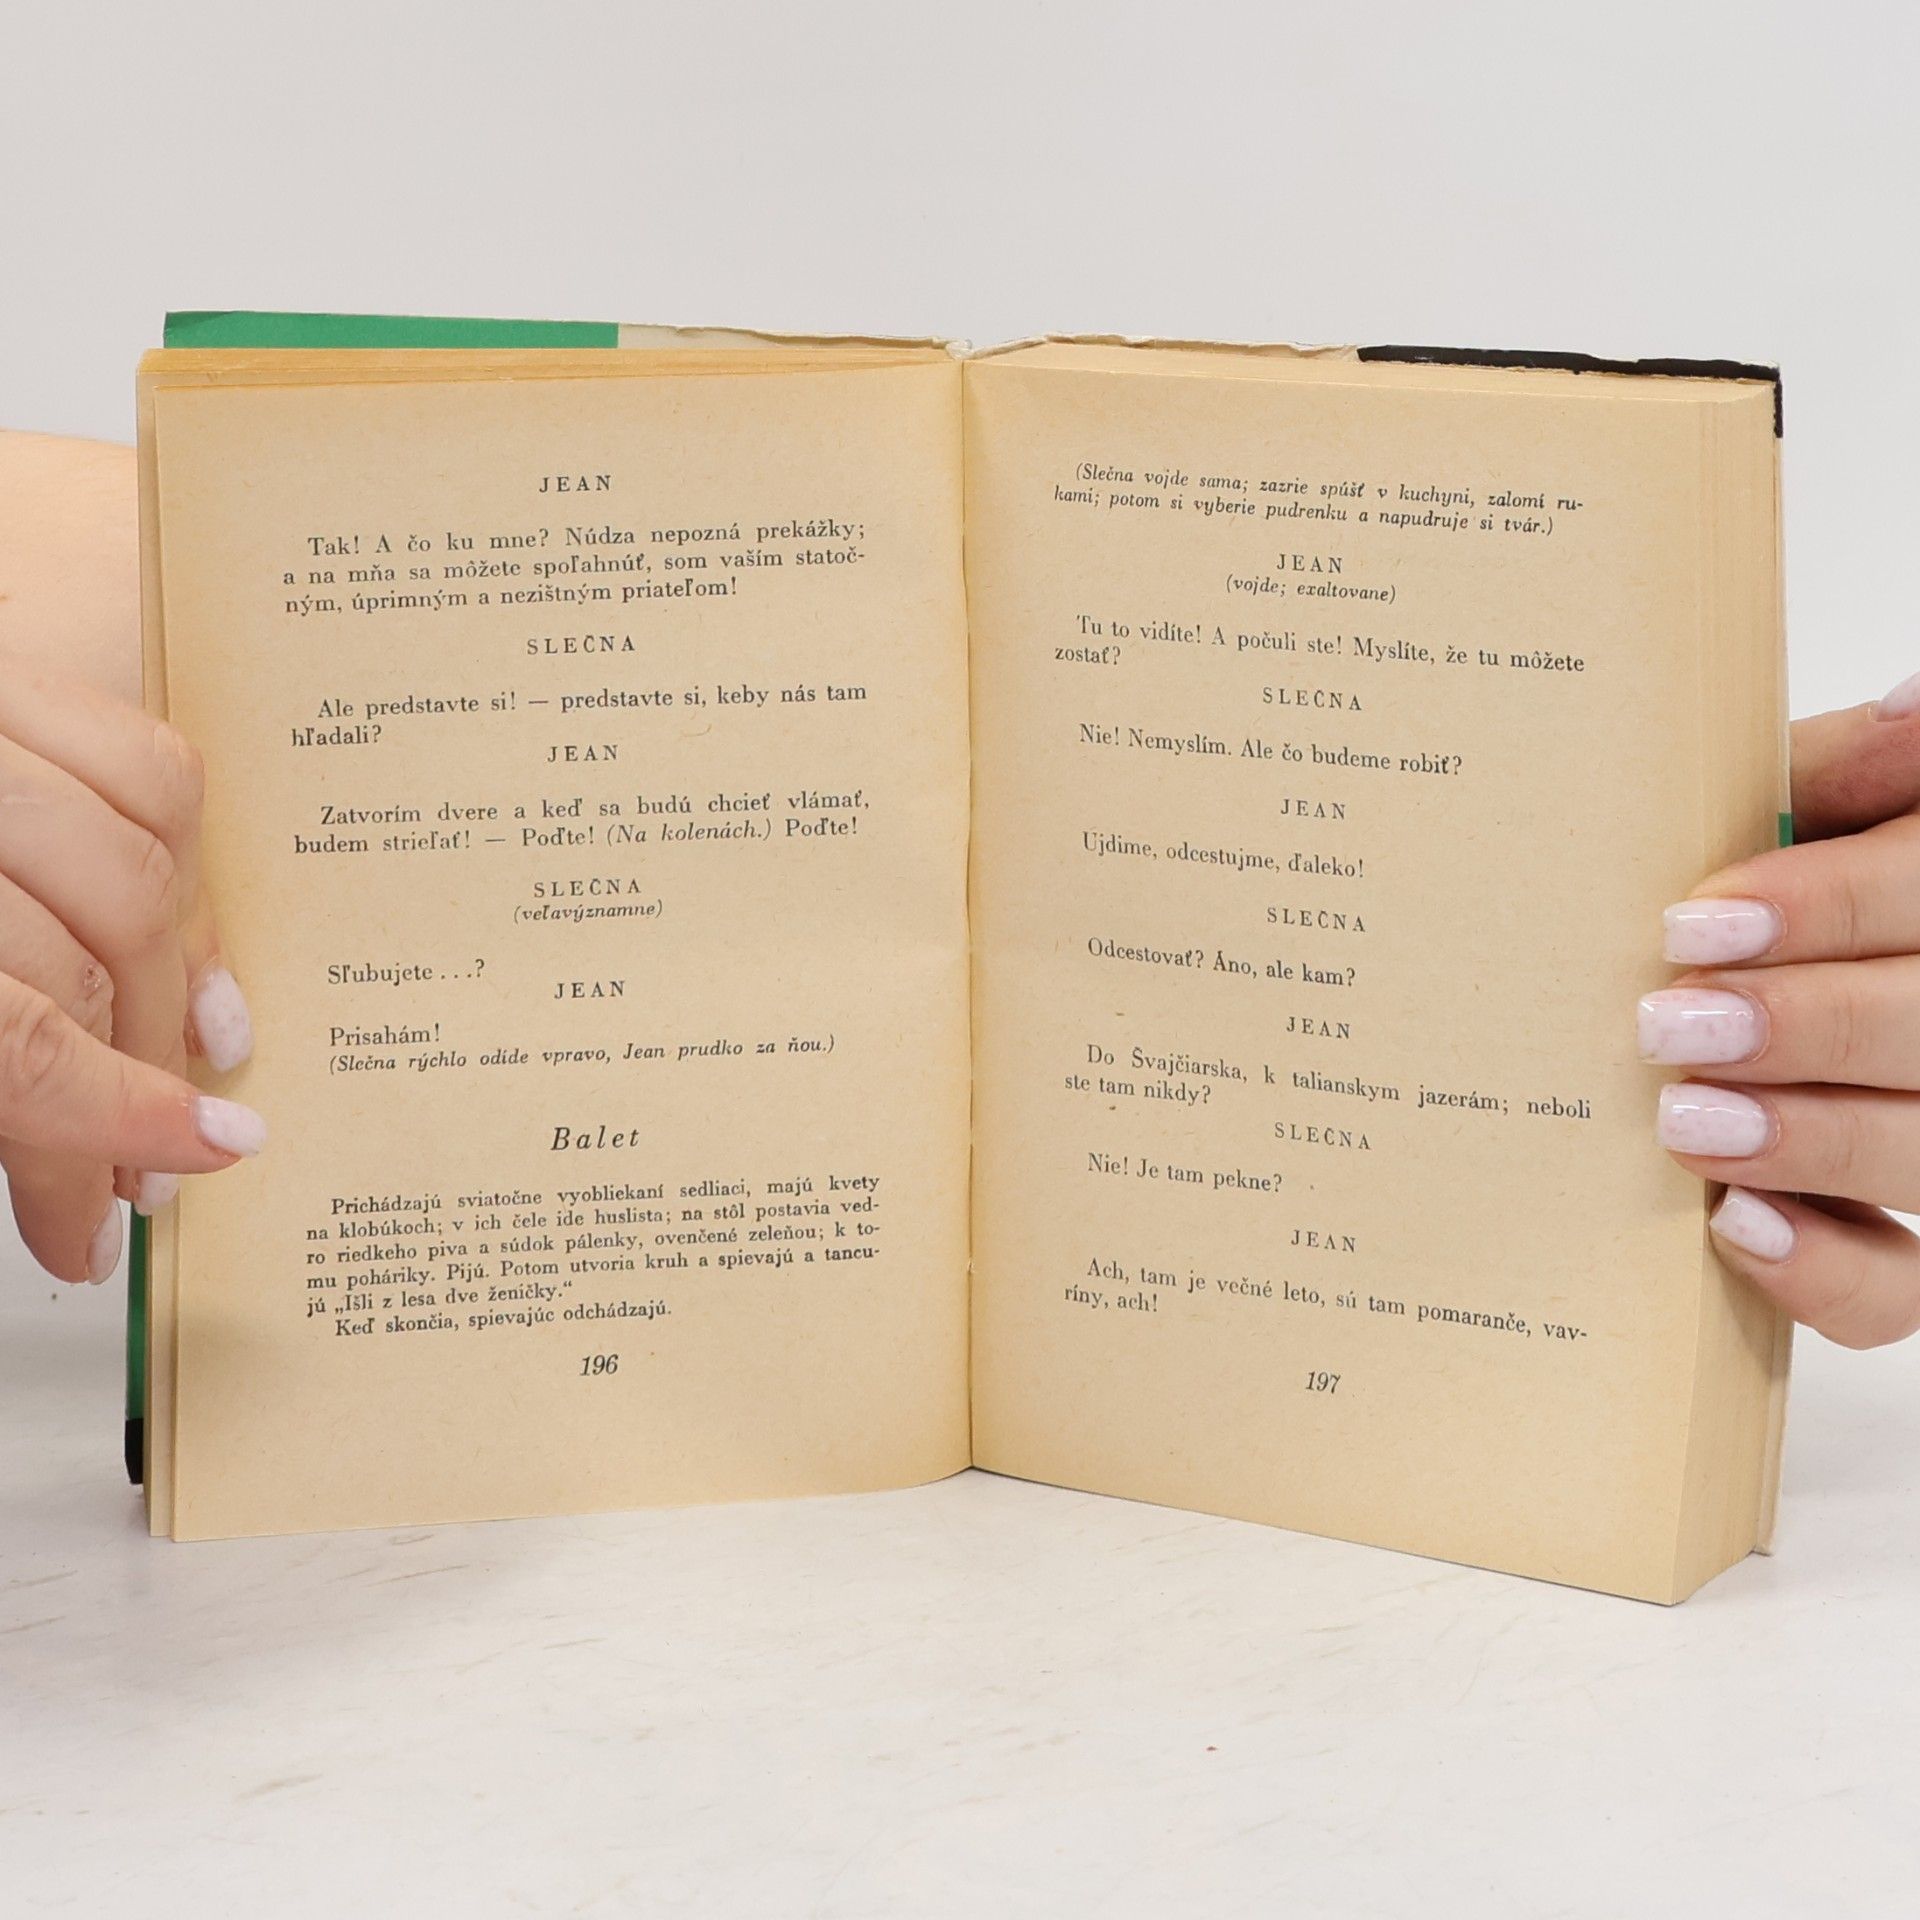 JEAN
Tak! A čo ku mne? Núdza nepozná prekážky;
a na mňa sa môžete spoľahnúť, som vaším statoč-
ným, úprimným a nezištným priateľom!
SLEČNA
Ale predstavte si! — predstavte si, keby nás tam
hľadali?
JEAN
Zatvorím dvere a keď sa budú chcieť vlámať,
budem strieľať! — Poďte! (Na kolenách.) Poďte!
SLEČNA
(veľavýznamne)
Sľubujete ...?
JEAN
Prisahám!
(Slečna rýchlo odíde vpravo, Jean prudko za ňou.)
Balet
Prichádzajú sviatočne vyobliekaní sedliaci, majú kvety
na klobúkoch; v ich čele ide huslista; na stôl postavia ved-
ro riedkeho piva a súdok pálenky, ovenčené zeleňou; k to-
mu poháriky. Pijú. Potom utvoria kruh a spievajú a tancu-
jú „Išli z lesa dve ženičky.“
Keď skončia, spievajúc odchádzajú.
196
(Slečna vojde sama; zazrie spúšť v kuchyni, zalomí ru-
kami; potom si vyberie pudrenku a napudruje si tvár.)
JEAN
(vojde; exaltovane)
Tu to vidíte! A počuli ste! Myslíte, že tu môžete
zostať?
SLEČNA
Nie! Nemyslím. Ale čo budeme robiť?
JEAN
Ujdime, odcestujme, ďaleko!
SLEČNA
Odcestovať? Áno, ale kam?
JEAN
Do Švajčiarska, k talianskym jazerám; neboli
ste tam nikdy?
SLEČNA
Nie! Je tam pekne?
JEAN
Ach, tam je večné leto, sú tam pomaranče, vav-
ríny, ach!
197